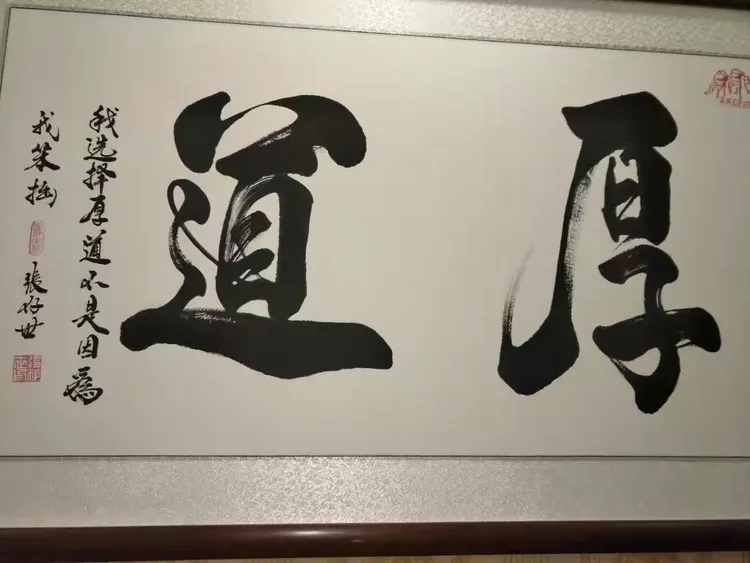 厚道
我选择厚道不是因為
我笨拙
張好世